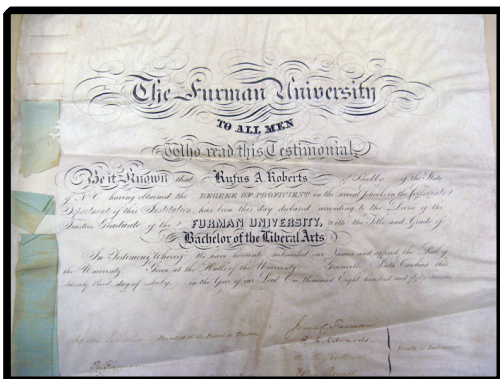 The Furman University
TO ALL MEN
Who read this Testimonial
Be it Known that Rufus A Roberts of Shelby of the State
of N C having obtained the DEGREE OF PROFICIENT in the several Schools in the Collegiate
Department of this Institution, has been this day declared according to the Decree of the
Trustees Graduate of the FURMAN UNIVERSITY, with the Title and Grade of
Bachelor of the Liberal Arts
In Testimony Whereof We have hereunto subscribed our Names and affixed the Seal of
the University Given at the Halls of the University Greenville South Carolina this
twenty third day of July in the Year of our Lord One thousand Eight hundred and fifty
President of the Board of Trustees
James C Furman
P. C. Edwards